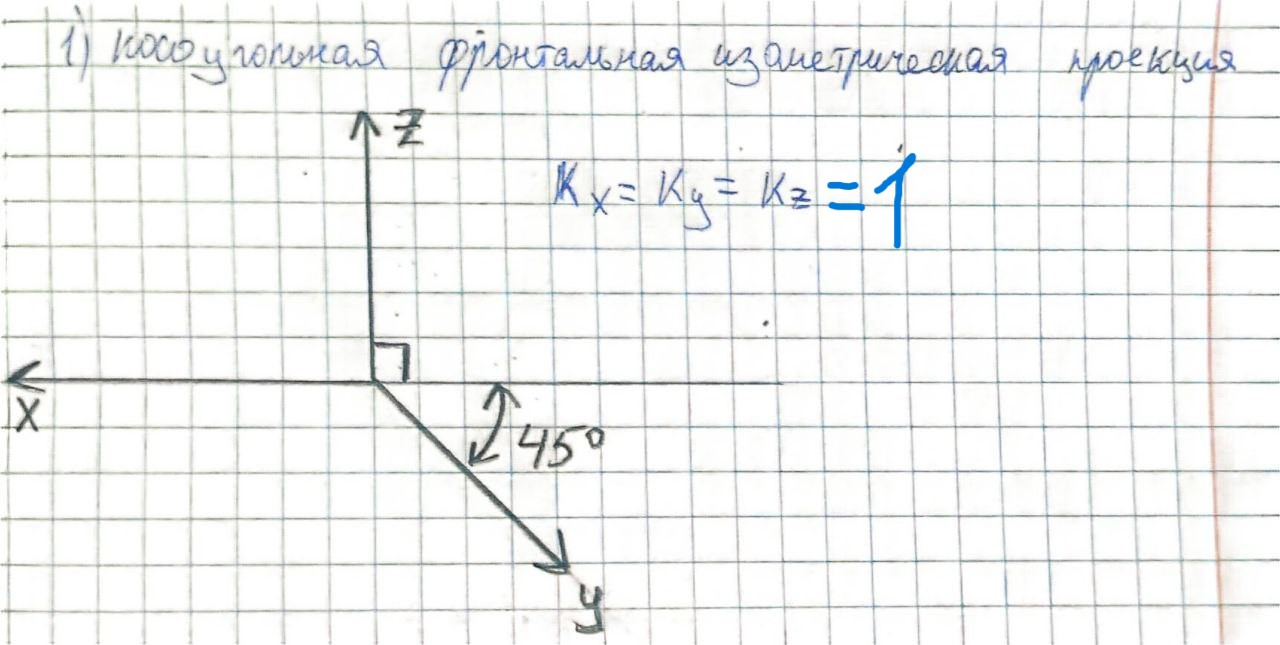 1) косоугольная фронтальная изометрическая проекция
Z
Kx = Ky = Kz = 1
X
45°
y